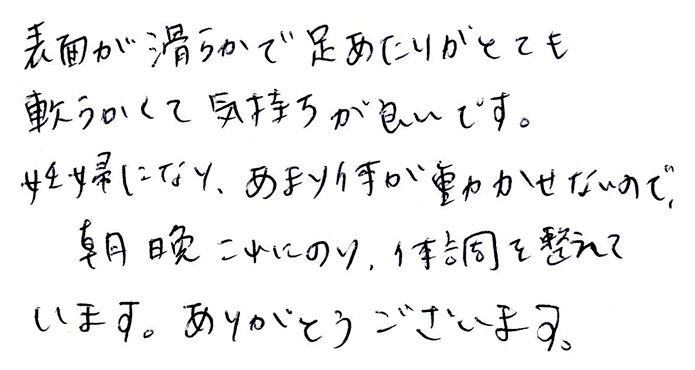 表面が滑らかで足あたりがとても
軟らかくて気持ちが良いです。
妊婦になり、あまり体が動かせないので、
朝晩これにのり、体調を整えて
います。ありがとうございます。